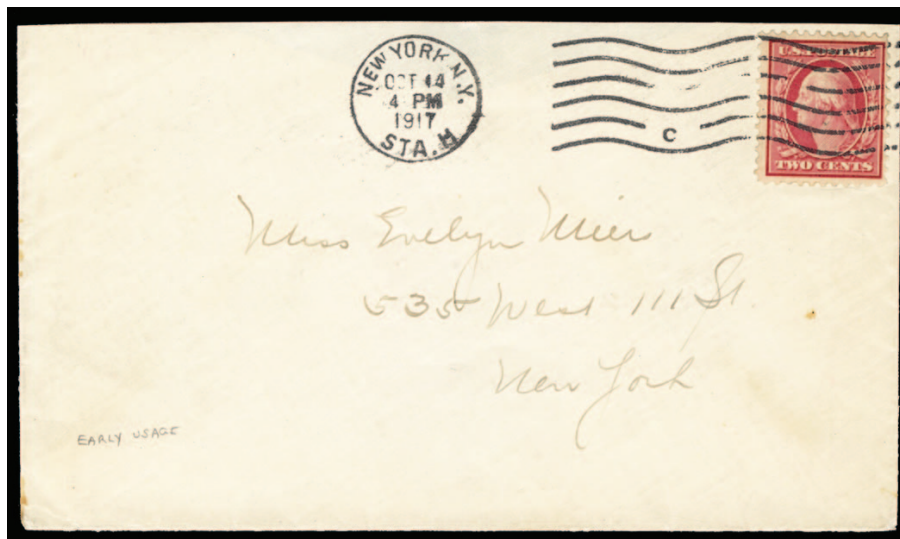 NEW YORK, N.Y.
OCT 14
4 PM
1917
STA. H
C
U.S. POSTAGE
TWO CENTS
Miss Evelyn Mier
535 West 111 St.
New York
EARLY USAGE